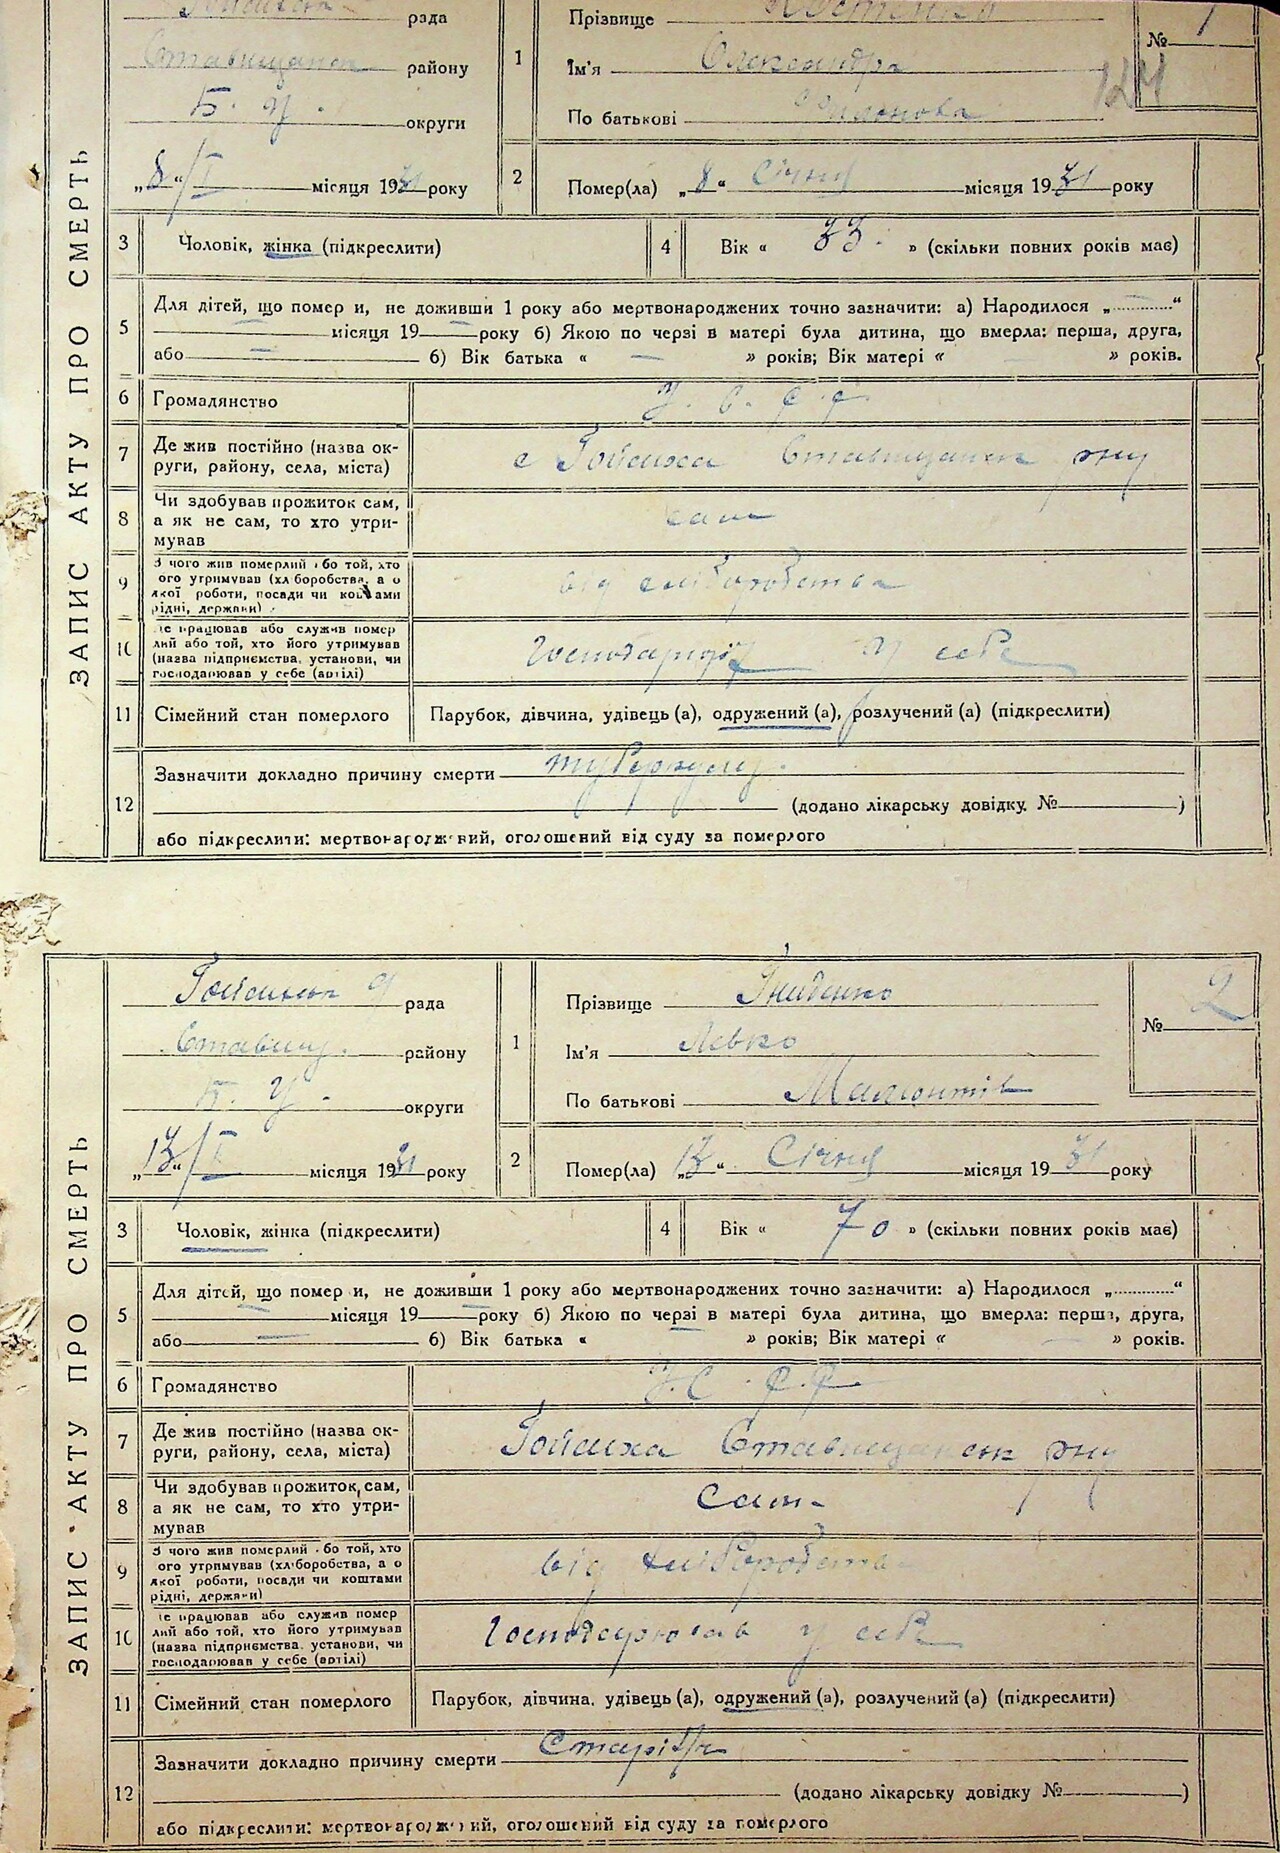 рада
Прізвище
№ 1
Ставищанськ району
1
Ім'я Олександра
124
Б. Ц. округи
По батькові
„8“/I місяця 1931 року
2
Помер(ла) „8“ Січня місяця 1931 року
3 Чоловік, жінка (підкреслити) 4 Вік « 33 » (скільки повних років має)
5
Для дітей, що померли, не доживши 1 року або мертвонароджених точно зазначити: а) Народилося „ “
місяця 19 року б) Якою по черзі в матері була дитина, що вмерла: перша, друга,
або б) Вік батька « — » років; Вік матері « » років.
6 Громадянство У. С. Р. Р.
7
Де жив постійно (назва ок-
руги, району, села, міста)
с Гойсиха Ставищанськ р-ну
8
Чи здобував прожиток сам,
а як не сам, то хто утри-
мував
сам
9
З чого жив померлий або той, хто
його утримував (хліборобства, а о
якої роботи, посади чи коштами
рідні, держави)
від хліборобства
10
Де працював або служив помер
лий або той, хто його утримував
(назва підприємства, установи, чи
господарював у себе (артілі)
у себе
11 Сімейний стан померлого Парубок, дівчина, удівець (а), одружений (а), розлучений (а) (підкреслити)
12
Зазначити докладно причину смерти туберкульоз
(додано лікарську довідку № )
або підкреслити: мертвонароджений, оголошений від суду за померлого
ЗАПИС АКТУ ПРО СМЕРТЬ
рада
Прізвище Гниденко
№ 2
Ставищ. району
1
Ім'я Левко
Б. Ц. округи
По батькові Мамонтів
„13“/I місяця 1931 року
2
Помер(ла) „13“ Січня місяця 1931 року
3 Чоловік, жінка (підкреслити) 4 Вік « 70 » (скільки повних років має)
5
Для дітей, що померли, не доживши 1 року або мертвонароджених точно зазначити: а) Народилося „ “
місяця 19 року б) Якою по черзі в матері була дитина, що вмерла: перша, друга,
або б) Вік батька « » років; Вік матері « » років.
6 Громадянство У. С. Р. Р.
7
Де жив постійно (назва ок-
руги, району, села, міста)
Гойсиха Ставищанськ р-ну
8
Чи здобував прожиток сам,
а як не сам, то хто утри-
мував
Сам
9
З чого жив померлий або той, хто
його утримував (хліборобства, а о
якої роботи, посади чи коштами
рідні, держави)
від хліборобства
10
Де працював або служив помер
лий або той, хто його утримував
(назва підприємства, установи, чи
господарював у себе (артілі)
Господарював у себе
11 Сімейний стан померлого Парубок, дівчина, удівець (а), одружений (а), розлучений (а) (підкреслити)
12
Зазначити докладно причину смерти
(додано лікарську довідку № )
або підкреслити: мертвонароджений, оголошений від суду за померлого
ЗАПИС АКТУ ПРО СМЕРТЬ